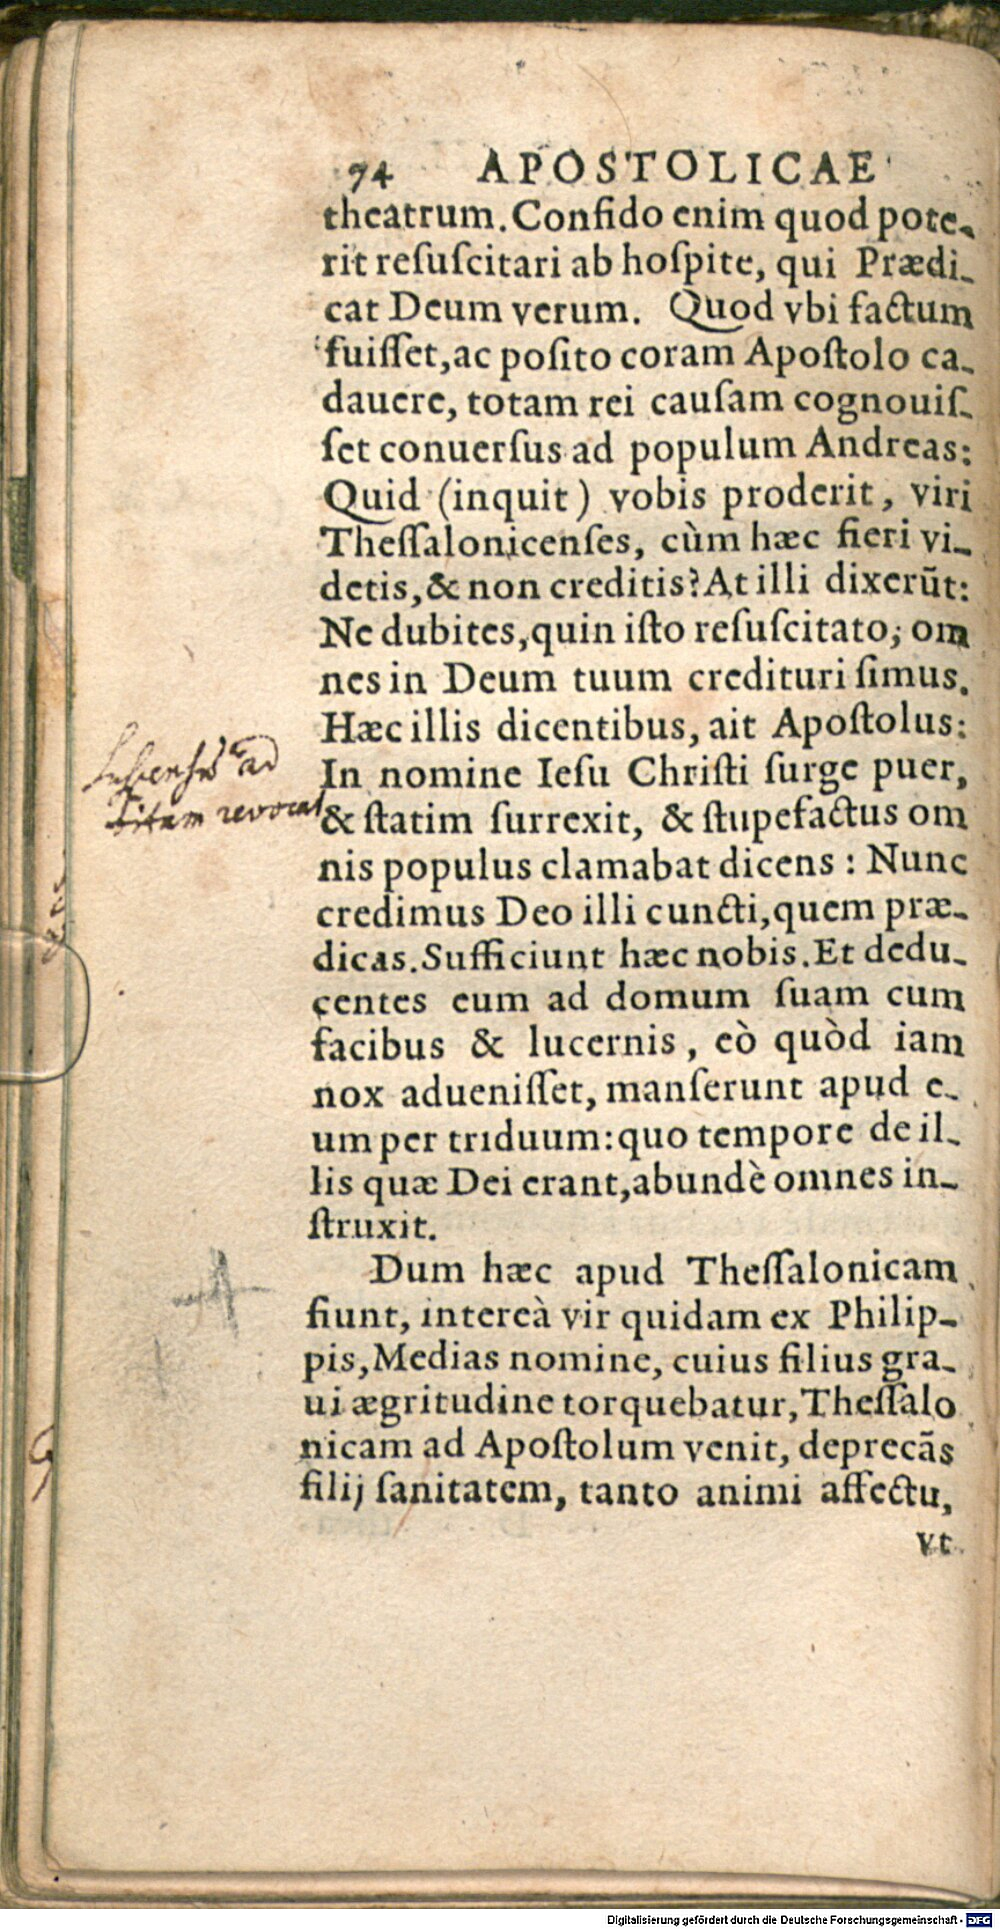 74 APOSTOLICAE
theatrum. Confido enim quod pote-
rit reſuſcitari ab hoſpite, qui Prædi-
cat Deum verum. Quod vbi factum
fuiſſet, ac poſito coram Apoſtolo ca-
dauere, totam rei cauſam cognouiſ-
ſet conuerſus ad populum Andreas:
Quid (inquit) vobis proderit, viri
Theſſalonicenſes, cùm hæc fieri vi-
detis, & non creditis? At illi dixerũt:
Ne dubites, quin iſto reſuſcitato, om
nes in Deum tuum credituri ſimus.
Hæc illis dicentibus, ait Apoſtolus:
ad
In nomine Ieſu Chriſti ſurge puer,
vitam revocat
& ſtatim ſurrexit, & ſtupefactus om
nis populus clamabat dicens: Nunc
credimus Deo illi cuncti, quem præ-
dicas. Sufficiunt hæc nobis. Et dedu-
centes eum ad domum ſuam cum
facibus & lucernis, eò quòd iam
nox adueniſſet, manſerunt apud e-
um per triduum: quo tempore de il-
lis quæ Dei erant, abundè omnes in-
ſtruxit.
Dum hæc apud Theſſalonicam
fiunt, intereà vir quidam ex Philip-
pis, Medias nomine, cuius filius gra-
ui ægritudine torquebatur, Theſſalo
nicam ad Apoſtolum venit, deprecãs
filij ſanitatem, tanto animi affectu,
vt
Digitalisierung gefördert durch die Deutsche Forschungsgemeinschaft - DFG